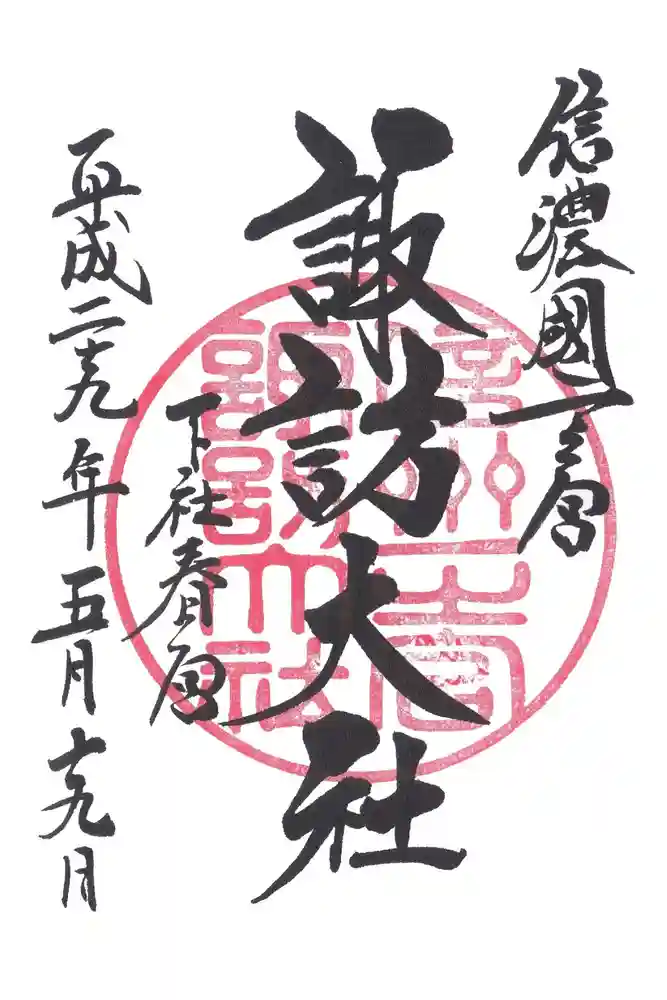 信濃國一之宮
諏訪大社
下社春宮
平成二十九年五月十九日
信州一宮
諏訪大社